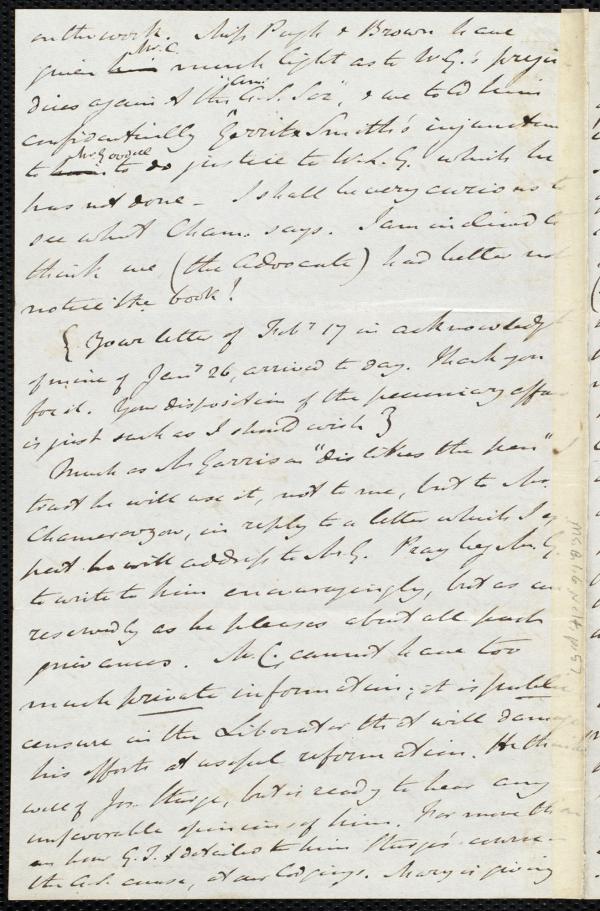 on the work. Miss Pugh & Brown have
given him Mr. C. much light as to W.G.'s preju-
dices against "the Am. A.S. Soc", & we told him
confidentially "Gerrit Smith's injunction
to him Wm Goodell to do justice to W.L.G." which he
has not done — I shall be very curious to
see what Cham. says. I am inclined to
think we (the Advocate) had better not
notice the book!
{ Your letter of Feby 17 in acknowledgt
of mine of Jany 26, arrived to day. Thank you
for it. Your disposition of the pecuniary affair
is just such as I should wish }
Much as Mr Garrison "dislikes the pen" I
trust he will use it, not to me, but to Mr
Chamerovzow, in reply to a letter which I ex-
pect he will address to Mr G. Pray beg Mr G.
to write to him encouragingly, but as un-
reservedly as he pleases about all past
grievances. Mr C. cannot have too
much private information; it is public
censure in the Liberator that will damage
his efforts at useful reformation. He thinks
well of Jos. Sturge, but is ready to hear any
unfavorable opinions of him. For more than
an hour G.T. & I detailed to him Sturge's course in
the A.S. cause, at our lodgings. Mary is giving
MS.B.1.6 v.4 p.57